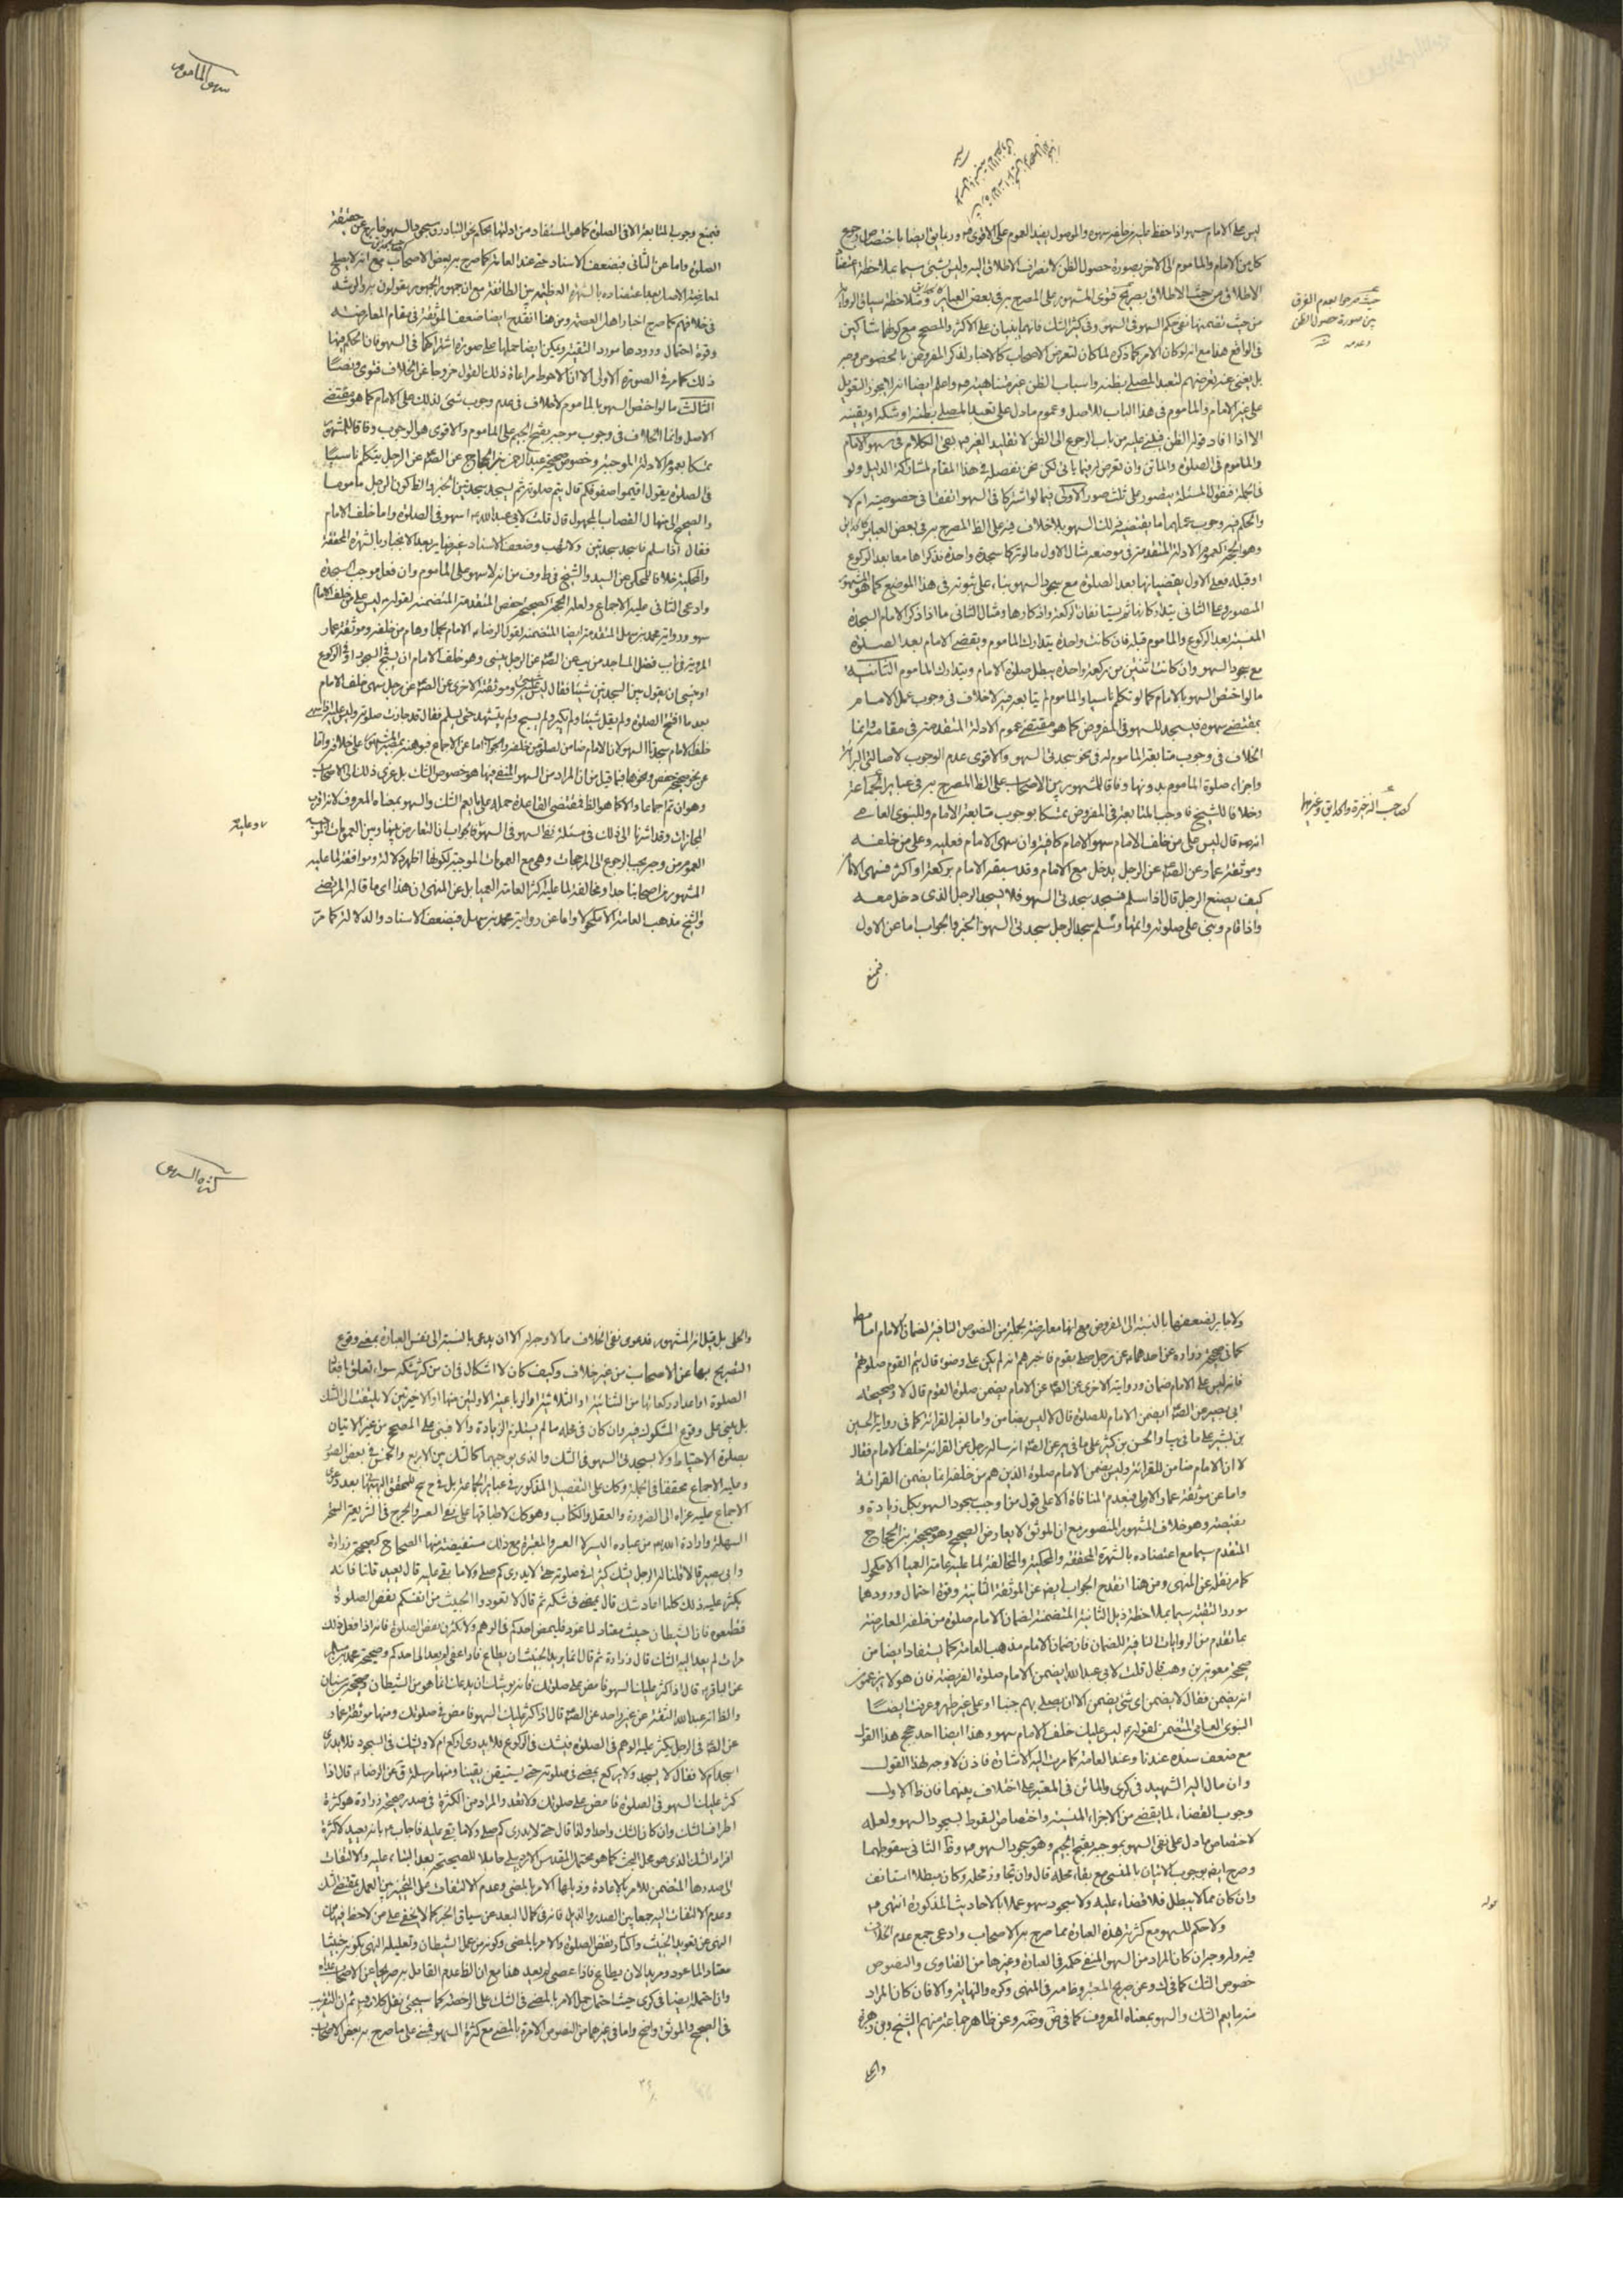 سهو المأموم
ليس على الامام سهو اذا حفظ عليه من خلفه سهوه والموصول يفيد العموم على الاقوى
كل من الامام والماموم الى الاخر بصورة حصول الظن لانصراف الاطلاق اليه وليس بشئ سيما بملاحظة
حيث صرحوا بعدم الفرق
بين صورة حصول الظن
وعدمه
من حيث تضمنها نفى حكم السهو فى السهو وفى كثير الشك فانهما يبنيان على الاكثر والمصحح مع كونهما شاكين
فى الواقع هذا مع انه لو كان الامر كما ذكره لما كان لتعرض الاصحاب كالاخبار لذكر المفروض بالخصوص وجه
بل يغنى عنه تعرضهم لتعبد المصلى بظنه واسباب الظن غير متناهية واعلم ايضا انه لا يجوز التعويل
على غير الامام والماموم فى هذا الباب للاصل وعموم مادل على تعبد المصلى بظنه او شكه او يقينه
الا اذا افاد قوله الظن فيبنى عليه من باب الرجوع الى الظن لا تقليد الغير بقى الكلام فى سهو الامام
والماموم فى الصلوة والماتن وان تعرض له فيما ياتى لكن نحن نفصله فى هذا المقام لمشاركة الدليل ولو
فى الجملة فنقول المسئلة يتصور على ثلث صور الاولى فيما لو اشتركا فى السهو اتفقا فى خصوصيته ام لا
والحكم فيه وجوب عملهما بما يقتضيه ذلك السهو بلا خلاف فيه على الظ المصرح به فى بعض العبائر
وهو الحجة كعموم الادلة المتقدمة فى موضعه مثال الاول ما لو تركا سجدة واحدة فذكراها معا بعد الركوع
او قبله فعلى الاول يقضيانها بعد الصلوة مع سجود السهو بناء على ثبوته فى هذا الموضع كما هو المشهور
المنصور وعلى الثانى يتداركانها ومثال الثانى ما اذا ذكر الامام السجدة
المنسية بعد الركوع والماموم قبله فان كانت واحدة يتدارك الماموم ويقضى الامام بعد الصلوة
مع سجود السهو وان كانت اثنتين من ركعة واحدة يبطل صلوة الامام ويتدارك الماموم الثانية
ما لو اختص السهو بالامام كما لو تكلم ناسيا والماموم لم يتابعه فيه لا خلاف فى وجوب عمل الامام
بمقتضى سهوه فيسجد للسهو فى المفروض كما هو مقتضى عموم الادلة المتقدمة فى مقامه وانما
الخلاف فى وجوب متابعة الماموم له فى نحو سجدتى السهو والاقوى عدم الوجوب لاصالتى البرائة
واجزاء صلوة الماموم بدونها وفاقا للمشهور بين الاصحاب على الظ المصرح به فى عبائر جماعة
كصاحب الذخيرة والحدايق وغيرهما
وخلافا للشيخ فاوجب المتابعة فى المفروض تمسكا بوجوب متابعة الامام وللنبوى العامى
انه قال ليس على من خلف الامام سهو الامام كافيه وان سهى الامام فعليه وعلى من خلفه
وموثقة عمار عن الصم عن الرجل يدخل مع الامام وقد سبقه الامام بركعة او اكثر فسهى الامام
كيف يصنع الرجل قال اذا سلم فسجد سجدتى السهو فلا يسجد الرجل الذى دخل معه
واذا قام وبنى على صلوته واتمها وسلم سجد الرجل سجدتى السهو الخبر والجواب اما عن الاول
فمنع
فبمنع وجوب المتابعة الا فى الصلوة كما هو المستفاد من ادلتها بحكم نحو التبادر وسجود السهو خارج عن حقيقة
الصلوة واما عن الثانى فبضعف الاسناد حتى عند العامة كما صرح به بعض الاصحاب مع انه لا يصلح
لمعارضة الاصل بعد اعتضاده بالشهرة العظيمة بين الطائفة مع ان جمهور الجمهور يقولون به والرشد
فى خلافهم كما صرح اخبار اهل العصمة ومن هنا انقدح ايضا ضعف الموثقة فى مقام المعارضة
وقوة احتمال ورودها مورد التقية ويمكن ايضا حملها على صورة اشتراكهما فى السهو فان الحكم فيها
ذلك كما مر فى الصورة الاولى الا ان الاحوط مراعاة ذلك القول خروجا عن الخلاف فتوى ونصا
الثالث ما لو اختص السهو بالماموم لا خلاف فى عدم وجوب شئ لذلك على الامام كما هو مقتضى
الاصل وانما الخلاف فى وجوب موجبه بفتح الجيم على الماموم والاقوى هو الوجوب وفاقا للمشهور
تمسكا بعموم الادلة الموجبة وخصوص صحيحة عبد الرحمن بن الحجاج عن الصم عن الرجل يتكلم ناسيا
فى الصلوة يقول اقيموا صفوفكم قال يتم صلوته ثم يسجد سجدتين الخبر والظ كون الرجل ماموما
والصحيح الى منهال القصاب المجهول قال قلت لابى عبد الله اسهو فى الصلوة وانا خلف الامام
فقال اذا سلم فاسجد سجدتين ولا تهب وضعف الاسناد غير ضاير بعد الانجبار بالشهرة المحققة
والمحكية خلافا للمحكى عن السيد والشيخ فى ط وف من انه لا سهو على الماموم وان فعل موجب السجدة
وادعى الثانى عليه الاجماع ولعله الحجة كصحيحة حفص المتقدمة المتضمنة لقوله ليس على من خلف الامام
سهو ورواية محمد بن سهل المتقدمة ايضا المتضمنة لقول الرضا الامام يحمل اوهام من خلفه وموثقة عمار
المروية فى باب فضل المساجد من يب عن الصم عن الرجل ينسى وهو خلف الامام ان يسبح فى السجود او فى الركوع
او ينسى ان يقول بين السجدتين شيئا فقال ليس عليه شئ وموثقته الاخرى عن الصم عن رجل سهى خلف الامام
بعد ما افتتح الصلوة ولم يقل شيئا ولم يكبر ولم يسبح ولم يتشهد حتى يسلم فقال قد جازت صلوته وليس عليه
خلف الامام سجدتا السهو لان الامام ضامن لصلوة من خلفه والجواب اما عن الاجماع فبوهنه بمصير المشهور على خلافه واما
عن نحو صحيحة حفص وهو خصوص الشك
وهو ان تم اجماعا والا كما هو الظ فمقتضى القاعدة حمله على ما يعم الشك والسهو بمعناه المعروف لانه اقرب
المجازات وقد اشرنا الى ذلك فى مسئلة السهو فى السهو فالجواب ان التعارض بينها وبين العمومات
العموم من وجه يجب الرجوع الى المرجحات وهى مع العمومات الموجبة لكونها اظهر دلالة وموافقة لما عليه
المشهور من اصحابنا جدا ومخالفة لما عليه اكثر العامة العميا بل عن المنتهى ان هذا اى ما قاله المرتضى
والشيخ مذهب العامة الا مكحولا واما عن رواية محمد بن سهل فبضعف الاسناد والدلالة كما مر
كثرة السهو
ولا جابر لضعفها بالنسبة الى المفروض مع انها معارضة بجملة من النصوص النافية لضمان الامام
كما فى صحيحة زرارة عن احدهما عن رجل صلى بقوم فاخبرهم انه لم يكن على وضوء قال يتم القوم صلوتهم
فانه ليس على الامام ضمان وروايته الاخرى عن الصم عن الامام يضمن صلوة القوم قال لا وصحيحة
ابى بصير عن الصم ايضمن الامام للصلوة قال لا ليس بضامن واما لغير القرائة كما فى رواية الحسين
بن بشير على ما فى يب والحسن بن كثير على ما فى يه عن الصم انه ساله رجل عن القرائة خلف الامام فقال
لا ان الامام ضامن للقرائة وليس يضمن الامام صلوة الذين هم من خلفه انما يضمن القرائة
واما عن موثقة عمار الاولى فبعدم المنافاة الا على قول من اوجب سجود السهو بكل زيادة و
نقيصة وهو خلاف المشهور المنصور مع ان الموثق لا يعارض الصحيح وهو صحيحة بن الحجاج
المتقدم سيما مع اعتضاده بالشهرة المحققة والمحكية والمخالفة لما عليه عامة العميا الا مكحول
كما مر نقله عن المنتهى ومن هنا انقدح الجواب ايضا عن الموثقة الثانية وقوة احتمال ورودها
مورد التقية سيما بملاحظة ذيل الثانية المتضمنة لضمان الامام صلوة من خلفه المعارضة
بما تقدم من الروايات النافية للضمان فان ضمان الامام مذهب العامة كما يستفاد ايضا من
صحيحة معوية بن وهب قال قلت لابى عبد الله ايضمن الامام صلوة الفريضة فان هؤلاء يزعمون
انه يضمن فقال لا يضمن اى شئ يضمن الا ان يصلى بهم جنبا او على غير طهر وعرفت ايضا
النبوى العامى المتضمن لقوله ليس عليك خلف الامام سهو وهذا ايضا احد حجج هذا القول
مع ضعف سنده عندنا وعند العامة كما مرت اليه الاشارة فاذن لا وجه لهذا القول
وان مال اليه الشهيد فى كرى والماتن فى المعتبر على اختلاف بينهما فان ظ الاول
وجوب القضاء لما يقضى من الاجزاء المنسية واختصاص السقوط بسجود السهو ولعله
لاختصاص مادل على نفى السهو بموجبه بفتح الجيم وهو سجود السهو وظ الثانى سقوطهما
وصرح ايضا بوجوب الاتيان بالمنسى مع بقاء محله قال وان تجاوز محله وكان مبطلا استانف
وان كان مما لا يبطل فلا قضاء عليه ولا سجود سهو عملا بالاحاديث المذكورة انتهى
قوله
ولا حكم للسهو مع كثرته هذه العبارة مما صرح به الاصحاب وادعى جمع عدم الخلاف
فيه وله وجه ان كان المراد من السهو المنفى حكمه فى العبارة وغيرها من الفتاوى والنصوص
خصوص الشك كما فى ك وعن صريح المعتبر وظاهر فى المنتهى وكره والنهاية والا فان كان المراد
منه ما يعم الشك والسهو بمعناه المعروف كما فى ض وضه وعن ظاهر جماعة منهم الشيخ وبن زهرة
والحلى
والحلى بل قيل انه المشهور فدعوى نفى الخلاف مما لا وجه له الا ان يدعى بالنسبة الى نفس العبارة بمعنى وقوع
التصريح بها عن الاصحاب من غير خلاف وكيف كان لا اشكال فى ان من كثر شكه سواء تعلق بافعال
الصلوة او اعداد ركعاتها من الثنائية او الثلاثية او الرباعية الاوليتين منها او الاخيرتين لا يلتفت الى الشك
بل يبنى على وقوع المشكوك فيه وان كان فى محله ما لم يستلزم الزيادة والا فيبنى على المصحح من غير الاتيان
بصلوة الاحتياط ولا بسجدتى السهو فى الشك والذى يوجبهما كالشك بين الاربع والخمس فى بعض الصور
وعليه الاجماع محققا فى الجملة
الاجماع عليه عزاه الى الضرورة والعقل والكتاب وهو كك لاطباقها على نفى العسر والحرج فى الشريعة السمحة
السهلة وارادة الله من عباده اليسر لا العسر والمعتبرة مع ذلك مستفيضة منها الصحاح كصحيحة زرارة
وابى بصير قالا قلنا له الرجل يشك كثيرا فى صلوته حتى لا يدرى كم صلى ولا ما بقى عليه قال يعيد قلنا فانه
يكثر عليه ذلك كلما اعاد شك قال يمضى فى شكه ثم قال لا تعودوا الخبيث من انفسكم بنقض الصلوة
فتطمعوه فان الشيطان خبيث معتاد لما عود فليمض احدكم فى الوهم ولا يكثرن نقض الصلوة فانه اذا فعل ذلك
مرات لم يعد اليه الشك قال زرارة ثم قال انما يريد الخبيث ان يطاع فاذا عصى لم يعد الى احدكم وصحيحة محمد بن مسلم
عن الباقر قال اذا كثر عليك السهو فامض على صلوتك فانه يوشك ان يدعك انما هو من الشيطان وصحيحة بن سنان
والظ انه عبد الله الثقة عن غير واحد عن الصم قال اذا كثر عليك السهو فامض فى صلوتك ومنها موثقة عمار
عن الصم فى الرجل يكثر عليه الوهم فى الصلوة فيشك فى الركوع فلا يدرى اركع ام لا ويشك فى السجود فلا يدرى
اسجد ام لا فقال لا يسجد ولا يركع يمضى فى صلوته حتى يستيقن يقينا ومنها مرسلة ق عن الرضا قال اذا
كثر عليك السهو فى الصلوة فامض على صلوتك ولا تعد والمراد من الكثرة فى صدر صحيحة زرارة هو كثرة
اطراف الشك وان كان الشك واحدا ولذا قال حتى لا يدرى كم صلى ولا ما بقى عليه فاجاب بانه يعيد لا كثرة
افراد الشك الذى هو محل البحث كما هو محتمل المقدس الاردبيلى حاملا للصحيحة بعد البناء عليه والالتفات
الى صدرها المتضمن للامر بالاعادة وذيلها الامر بالمضى وعدم الالتفات على التخيير بين العمل بمقتضى الشك
وعدم الالتفات اليه جمعا بين الصدر والذيل فانه فى كمال البعد عن سياق الخبر كما لا يخفى على من لاحظ فيه
النهى عن تعويد الخبيث واكثار نقض الصلوة والامر بالمضى وكونه من عمل الشيطان وتعليله النهى بكونه خبيثا
معتادا لما عود ومريدا لان يطاع فاذا عصى لم يعد هذا مع ان الظ عدم القائل به صريحا عن الاصحاب
وان احتمله ايضا فى كرى حيث احتمل حمل الامر بالمضى فى الشك على الرخصة كما سيجئ نقل كلامه ثم ان التقريب
فى الصحيح والموثق واضح واما فى غيرهما من النصوص الامرة بالمضى مع كثرة السهو فمبنى على ما صرح به بعض الاصحاب